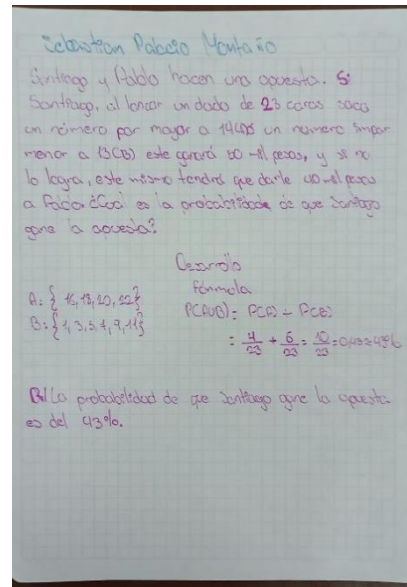 Sebastian Palacio Montaño
Santiago y Pablo hacen una apuesta. Si
Santiago, al lanzar un dado de 23 caras saca
un número par mayor a 14(A) o un número impar
menor a 13(B) este ganará 50 mil pesos, y si no
lo logra, este mismo tendrá que darle 40 mil pesos
a Pablo ¿Cuál es la probabilidad de que Santiago
gane la apuesta?
Desarrollo
Fórmula
A: { 16, 18, 20, 22}
P(AUB)= P(A) + P(B)
B: {1, 3, 5, 7, 9, 11}
= 4/23 + 6/23 = 10/23 = 0,43 = 43%
R/ La probabilidad de que Santiago gane la apuesta
es del 43%.